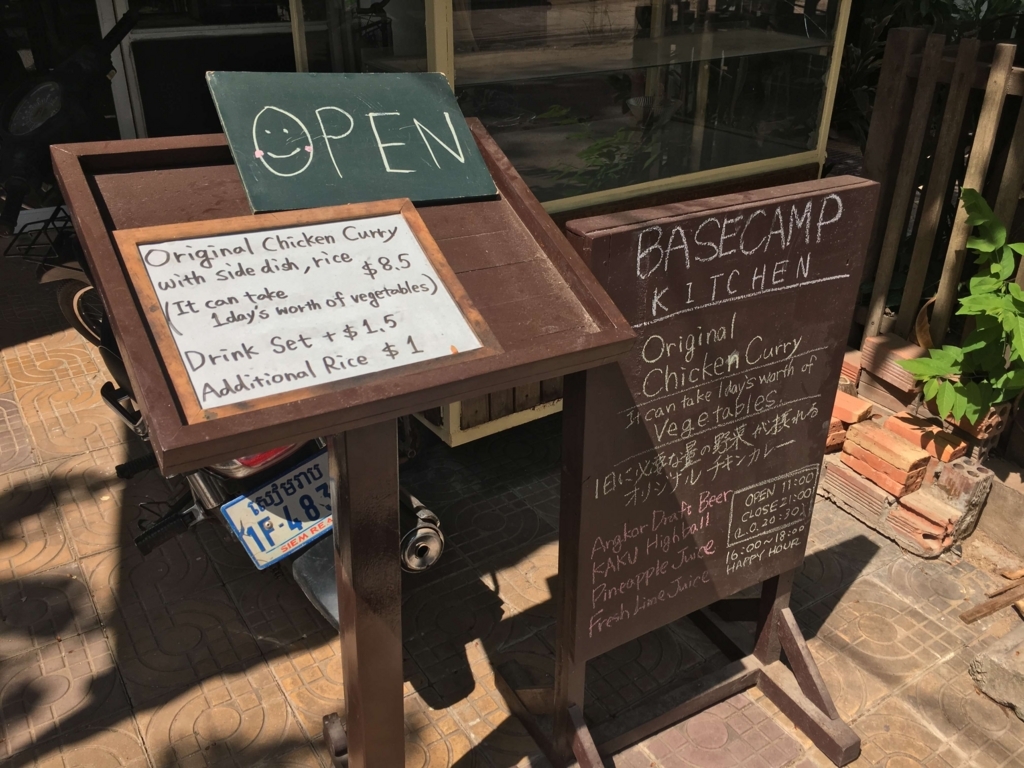 OPEN
Original Chicken Curry
with side dish, rice
$8.5
(It can take
1day's worth of vegetables)
Drink Set + $1.5
Additional Rice $1
BASECAMP
KITCHEN
Original
Chicken Curry
It can take 1day's worth of
Vegetables.
1日に必要な量の野菜が摂れる
オリジナルチキンカレー
Angkor Draft Beer
KAKU Highball
Pineapple Juice
Fresh Lime Juice
OPEN 11:00
CLOSE 21:00
(L.O. 20:30)
16:00~18:00
HAPPY HOUR
សៀមរាប
1F-483
SIEM REA